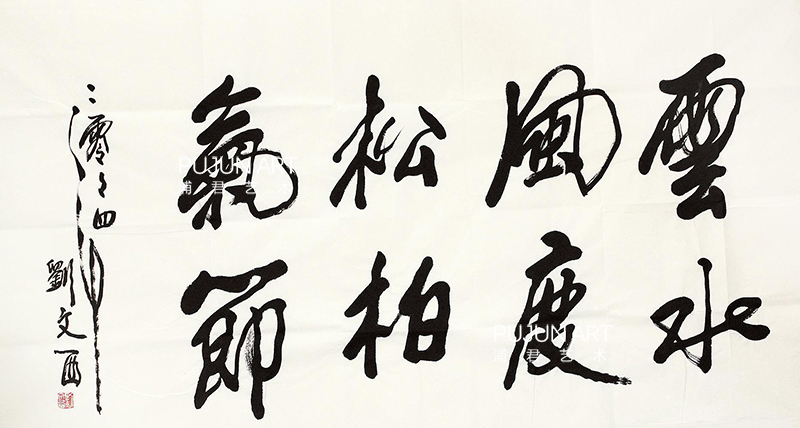 雲水
風度
松柏
氣節
二零零四年
劉文西
PUJUN ART
浦君艺术
PUJUN ART
浦君艺术